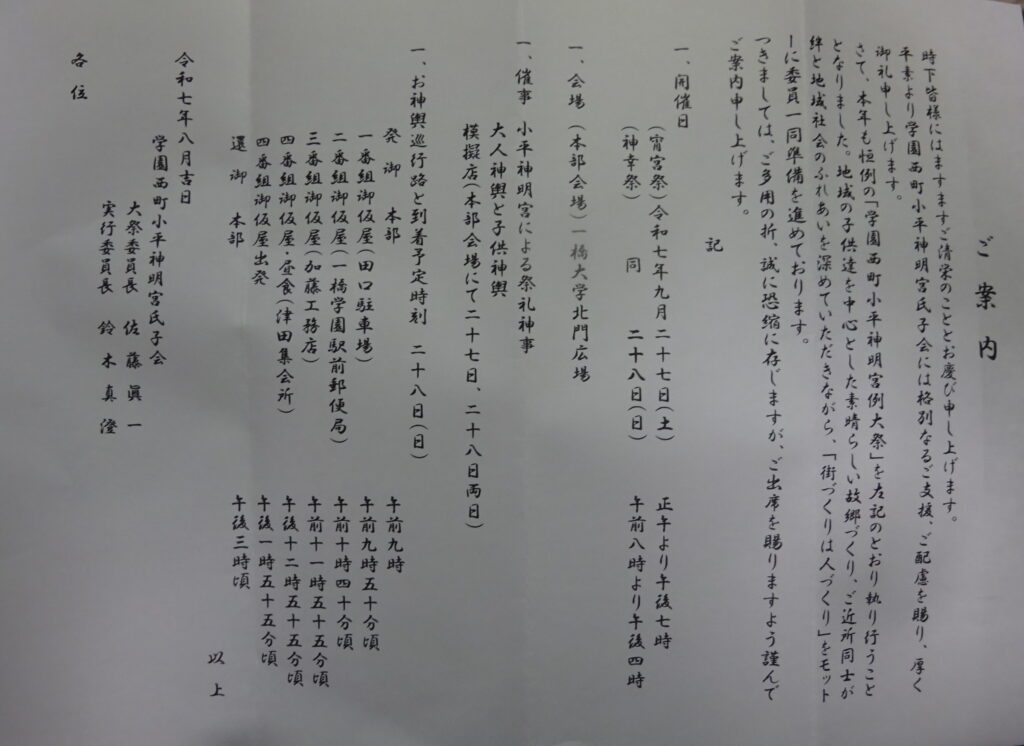 ご案内
時下皆様にはますますご清栄のこととお慶び申し上げます。
平素より学園西町小平神明宮氏子会には格別なるご支援、ご配慮を賜り、厚く
御礼申し上げます。
さて、本年も恒例の「学園西町小平神明宮例大祭」を左記のとおり執り行うこと
となりました。地域の子供達を中心とした素晴らしい故郷づくり、ご近所同士が
絆と地域社会のふれあいを深めていただきながら、「街づくりは人づくり」をモット
ーに委員一同準備を進めております。
つきましては、ご多用の折、誠に恐縮に存じますが、ご出席を賜りますよう謹んで
ご案内申し上げます。
記
一、開催日
(宵宮祭)令和七年九月二十七日(土) 正午より午後七時
(神幸祭) 同 二十八日(日) 午前八時より午後四時
一、会場 (本部会場)一橋大学北門広場
一、催事 小平神明宮による祭礼神事
大人神輿と子供神輿
模擬店(本部会場にて二十七日、二十八日両日)
一、お神輿巡行路と到着予定時刻 二十八日(日)
発御 本部 午前九時
一番組御仮屋(田口駐車場) 午前九時五十分頃
二番組御仮屋(一橋学園駅前郵便局) 午前十時四十分頃
三番組御仮屋(加藤工務店) 午前十一時五十五分頃
四番組御仮屋・昼食(津田集会所) 午後十二時五十五分頃
四番組御仮屋出発 午後一時五十五分頃
還御 本部 午後三時頃
以上
令和七年八月吉日
学園西町小平神明宮氏子会
大祭委員長 佐藤眞一
実行委員長 鈴木真澄
各位